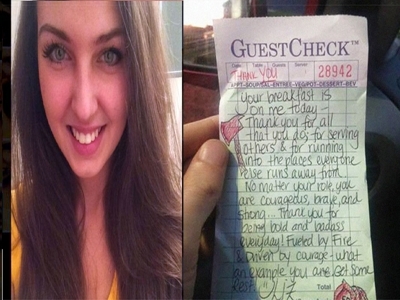 GUESTCHECK™
Date Table Guests Server
THANK YOU 28942
APPT-SOUP/SAL-ENTREE-VEG/POT-DESSERT-BEV
Your breakfast is
on me today –
Thank you for all
that you do; for serving
others & for running
into the places everyone
else runs away from.
No matter your role, you
are courageous, brave, and
strong... Thank you for
being bold and badass
everyday! Fueled by Fire
& Driven by courage - what
an example you are. Get some
rest
Total